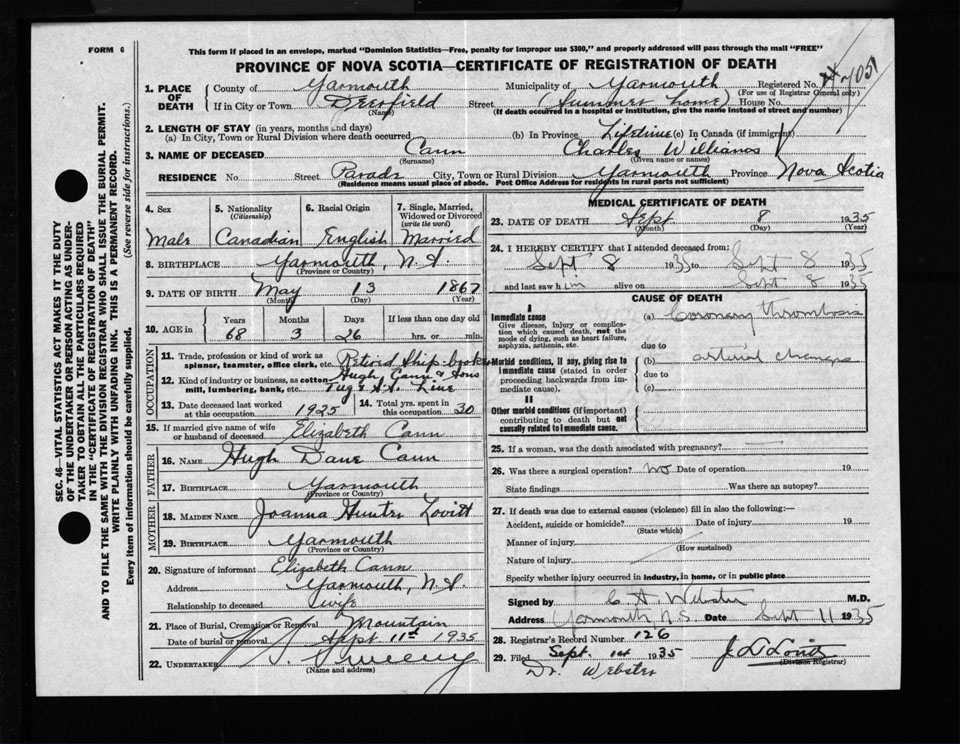 FORM 6
This form if placed in an envelope, marked "Dominion Statistics—Free, penalty for improper use $300," and properly addressed will pass through the mail "FREE"
PROVINCE OF NOVA SCOTIA—CERTIFICATE OF REGISTRATION OF DEATH
SEC. 46—VITAL STATISTICS ACT MAKES IT THE DUTY
OF THE UNDERTAKER OR PERSON ACTING AS UNDER-
TAKER TO OBTAIN ALL THE PARTICULARS REQUIRED
IN THE "CERTIFICATE OF REGISTRATION OF DEATH"
AND TO FILE THE SAME WITH THE DIVISION REGISTRAR WHO SHALL ISSUE THE BURIAL PERMIT.
WRITE PLAINLY WITH UNFADING INK. THIS IS A PERMANENT RECORD.
Every item of information should be carefully supplied. (See reverse side for instructions.)
1. PLACE OF DEATH County of Yarmouth Municipality of Yarmouth Registered No. 705
(For use of Registrar General only)
If in City or Town Deerfield Street (Summer home) House No.
(Name) (If death occurred in a hospital or institution, give the name instead of street and number)
2. LENGTH OF STAY (in years, months and days)
(a) In City, Town or Rural Division where death occurred (b) In Province Lifetime (c) In Canada (if immigrant)
3. NAME OF DECEASED Cann Charles Williams
(Surname) (Given name or names)
RESIDENCE No Street Parade City, Town or Rural Division Yarmouth Province Nova Scotia
(Residence means usual place of abode. Post Office Address for residents in rural parts not sufficient)
4. Sex 5. Nationality (Citizenship) 6. Racial Origin 7. Single, Married, Widowed or Divorced (write the word)
Male Canadian English Married
8. BIRTHPLACE Yarmouth, N.S.
(Province or Country)
9. DATE OF BIRTH May 13 1867
(Month) (Day) (Year)
10. AGE in Years Months Days If less than one day old
68 3 26 hrs. or min.
OCCUPATION
11. Trade, profession or kind of work as spinner, teamster, office clerk, etc. Retired Ship-
12. Kind of industry or business, as cotton mill, lumbering, bank, etc. Hugh Cann & Sons
Tug & S.S. Line
13. Date deceased last worked at this occupation 1925 14. Total yrs. spent in this occupation 30
15. If married give name of wife or husband of deceased Elizabeth Cann
FATHER
16. NAME Hugh Dane Cann
17. BIRTHPLACE Yarmouth
(Province or Country)
MOTHER
18. MAIDEN NAME Joanna Hunter Lovitt
19. BIRTHPLACE Yarmouth
(Province or Country)
20. Signature of informant Elizabeth Cann
Address Yarmouth, N.S.
Relationship to deceased wife
21. Place of Burial, Cremation or Removal Mountain
Date of burial or removal Sept 11th 1935
22. UNDERTAKER Sweeny
(Name and address)
MEDICAL CERTIFICATE OF DEATH
23. DATE OF DEATH Sept 8 1935
(Month) (Day) (Year)
24. I HEREBY CERTIFY that I attended deceased from:
Sept 8 1935 to Sept 8 1935
and last saw him alive on Sept 8 1935
CAUSE OF DEATH
I
Immediate cause (a) Coronary thrombosis
Give disease, injury or complication which caused death, not the mode of dying, such as heart failure, asphyxia, asthenia, etc.
due to
Morbid conditions, if any, giving rise to immediate cause (stated in order proceeding backwards from immediate cause). (b) arterial changes
due to
(c)
II
Other morbid conditions (if important) contributing to death but not causally related to immediate cause.
25. If a woman, was the death associated with pregnancy?
26. Was there a surgical operation? no Date of operation 19
State findings Was there an autopsy?
27. If death was due to external causes (violence) fill in also the following:—
Accident, suicide or homicide? Date of injury 19
(State which)
Manner of injury
(How sustained)
Nature of injury
Specify whether injury occurred in industry, in home, or in public place
Signed by C. A. Webster M.D.
Address Yarmouth, N.S. Date Sept 11 1935
28. Registrar's Record Number 126
29. Filed Sept. 14 1935
(Division Registrar)
Dr. Webster